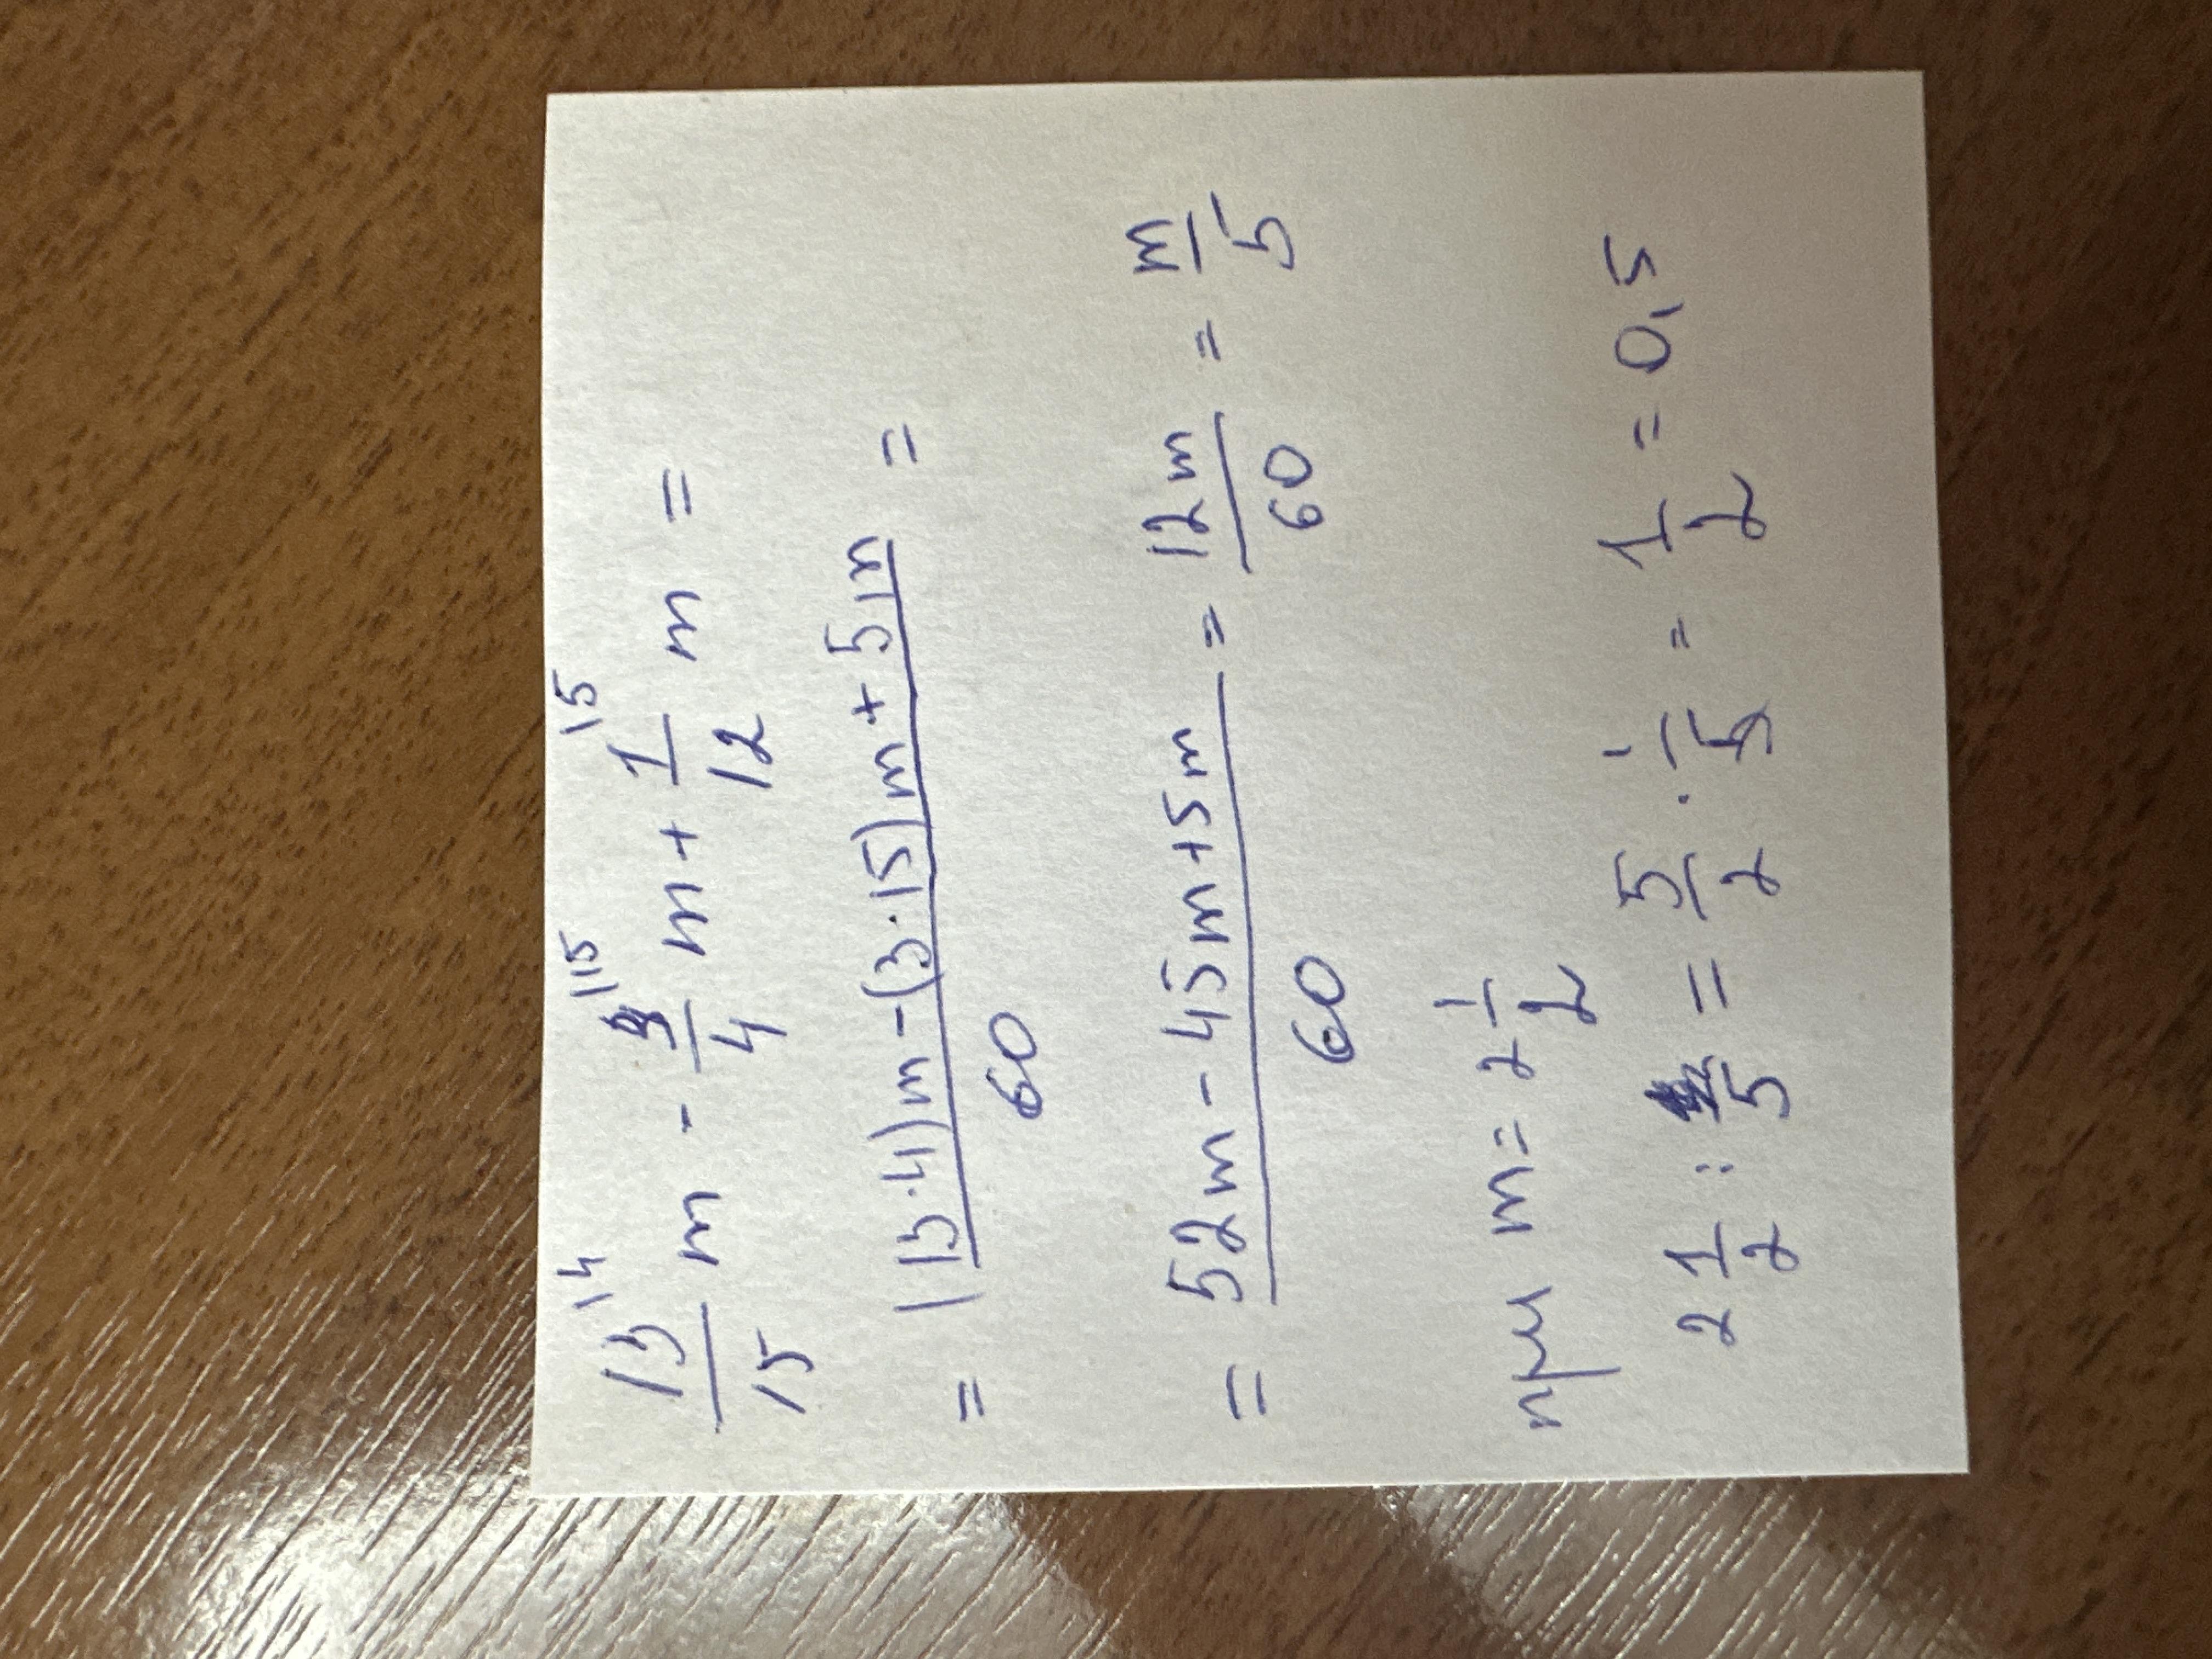 13/15 |4 m - 3/4 |15 m + 1/12 |5 m =
= (13·4)m-(3·15)m+5m / 60 =
= 52m - 45m+5m / 60 = 12m / 60 = m / 5
при m = 2 1/2
2 1/2 : /5 = 5/2 · 1/5 = 1/2 = 0,5